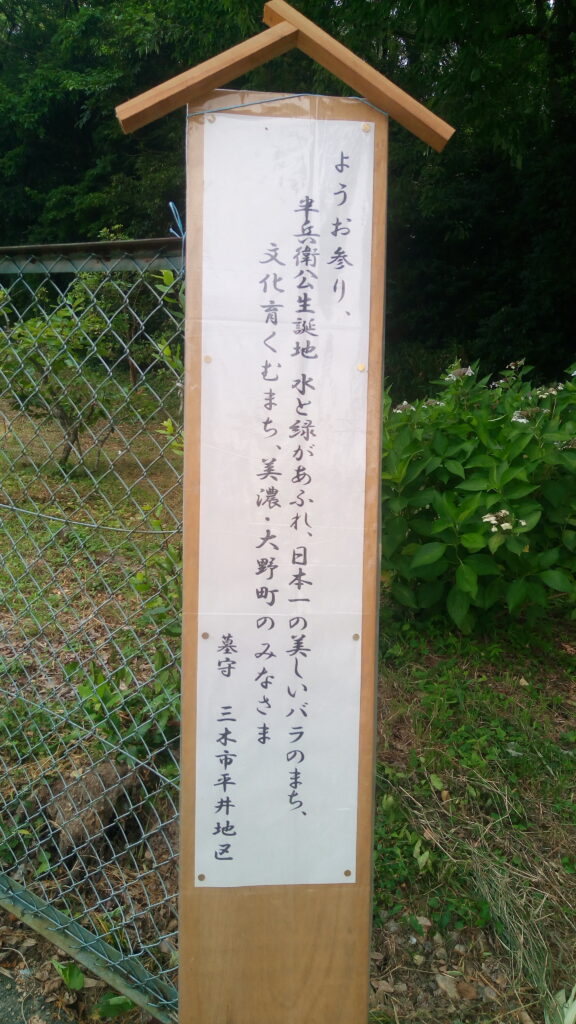 ようお参り、
半兵衛公生誕地 水と緑があふれ、日本一の美しいバラのまち、
文化育くむまち、美濃・大野町のみなさま
墓守 三木市平井地区